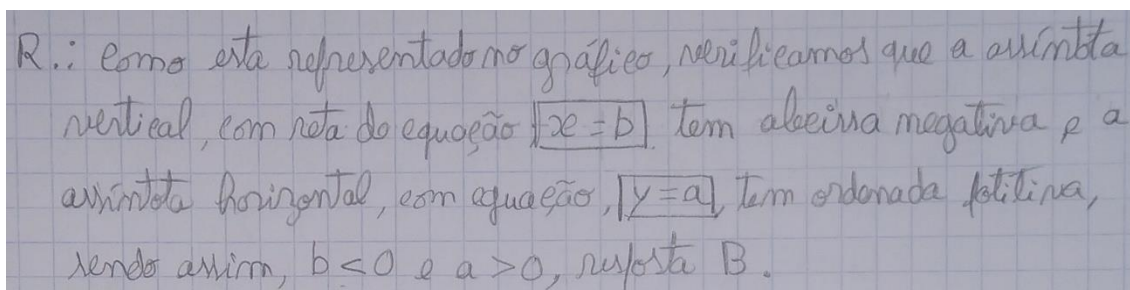 R.: Como esta representado no gráfico, verificamos que a assímtota
vertical, com reta do equação x = b tem abcissa negativa e a
assímtota horizontal, com equação, y = a, tem ordenada positiva,
sendo assim, b < 0 e a > 0, resposta B.